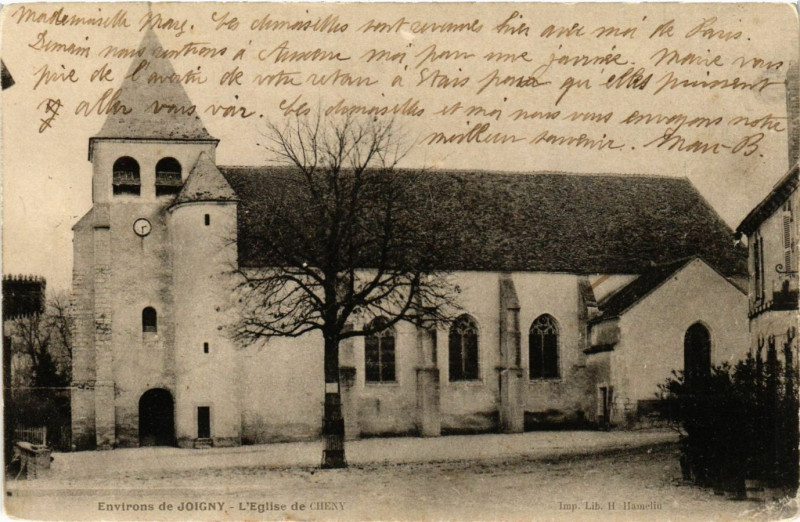 Mademoiselle Marg. Les demoiselles sont revenues hier avec moi de Paris.
Demain nous rentrons à Auxerre moi pour une journée. Marie vous
prie de l'avertir de votre retour à pour qu'elles puissent
aller vous voir. Les demoiselles et moi nous vous envoyons notre
meilleur souvenir. B.
Environs de JOIGNY - L'Eglise de CHENY
Imp. Lib. H. Hamelin